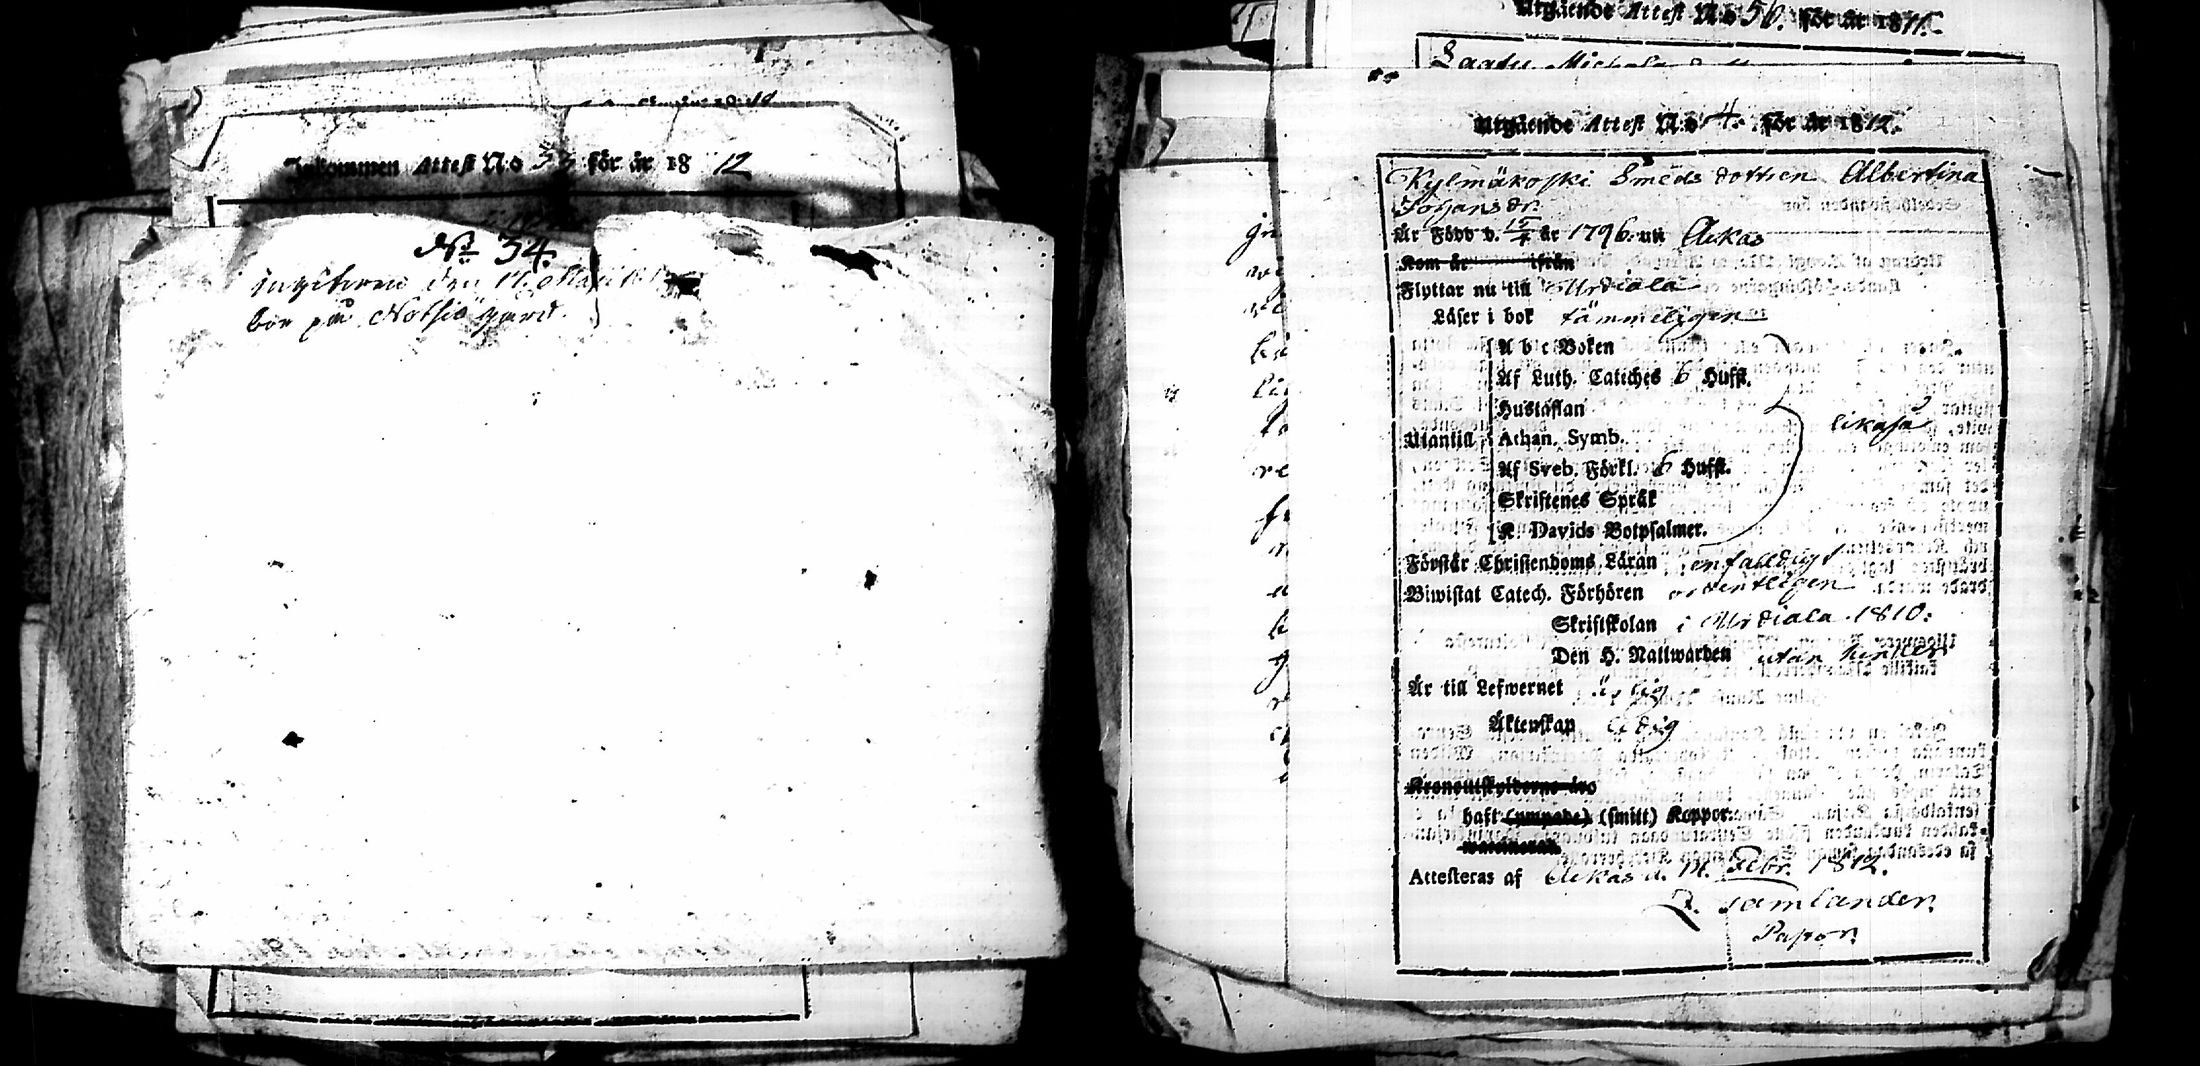 Inkommen Attest N:o 33 för år 1812
No 34.
ingifven den 11. Martii
bor på Notsiö gård.
Utgående Attest N:o 56. för år 1811.
Utgående Attest N:o 4. för år 1812.
Kylmäkoski Smeds dottren Albertina
Johansdr.
Är Född d. 15/4 år 1796. uti Ackas
Kom år ifrån
Flyttar nu till Urdiala
Läser i bok tämmeligen
A b c Boken
Af Luth. Cateches 6 Hufst.
Hustaflan
Utantill Athan. Symb. likaså
Af Sveb. Förkl. 6 Hufst.
Skriftenes Språk
K. Davids Botpsalmer.
Förstår Christendoms Läran enfalldigt
Biwistat Catech. Förhören ordentligen
Skriftskolan i Urdiala 1810.
Den H. Nattwarden utan hinder
Är till Lefwernet ärlig
Äktenskap ledig
Kronoutskylderne äro
haft (ympade) (smitt) Koppor.
Attesteras af Ackas d. 11. Febr. 1812.
Samlander.
Pastor.